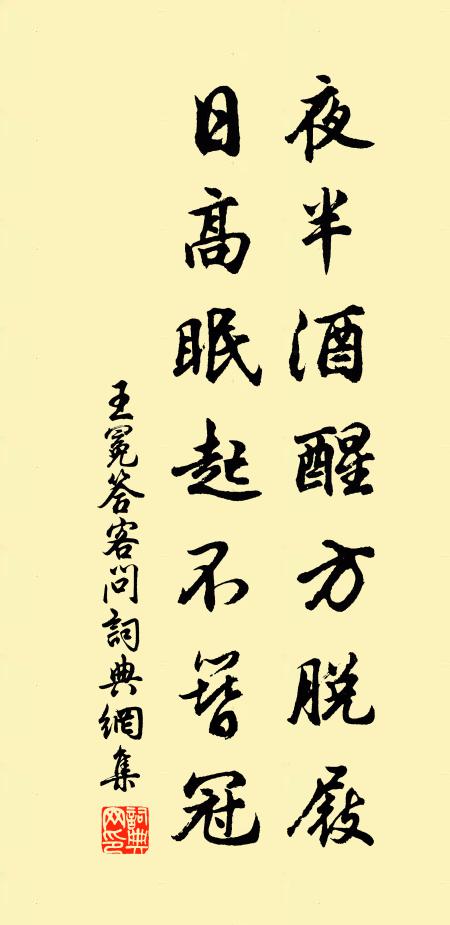 夜半酒醒方脱屐
日高眠起不簪冠
王冕答客问詞典網集
詞典网印